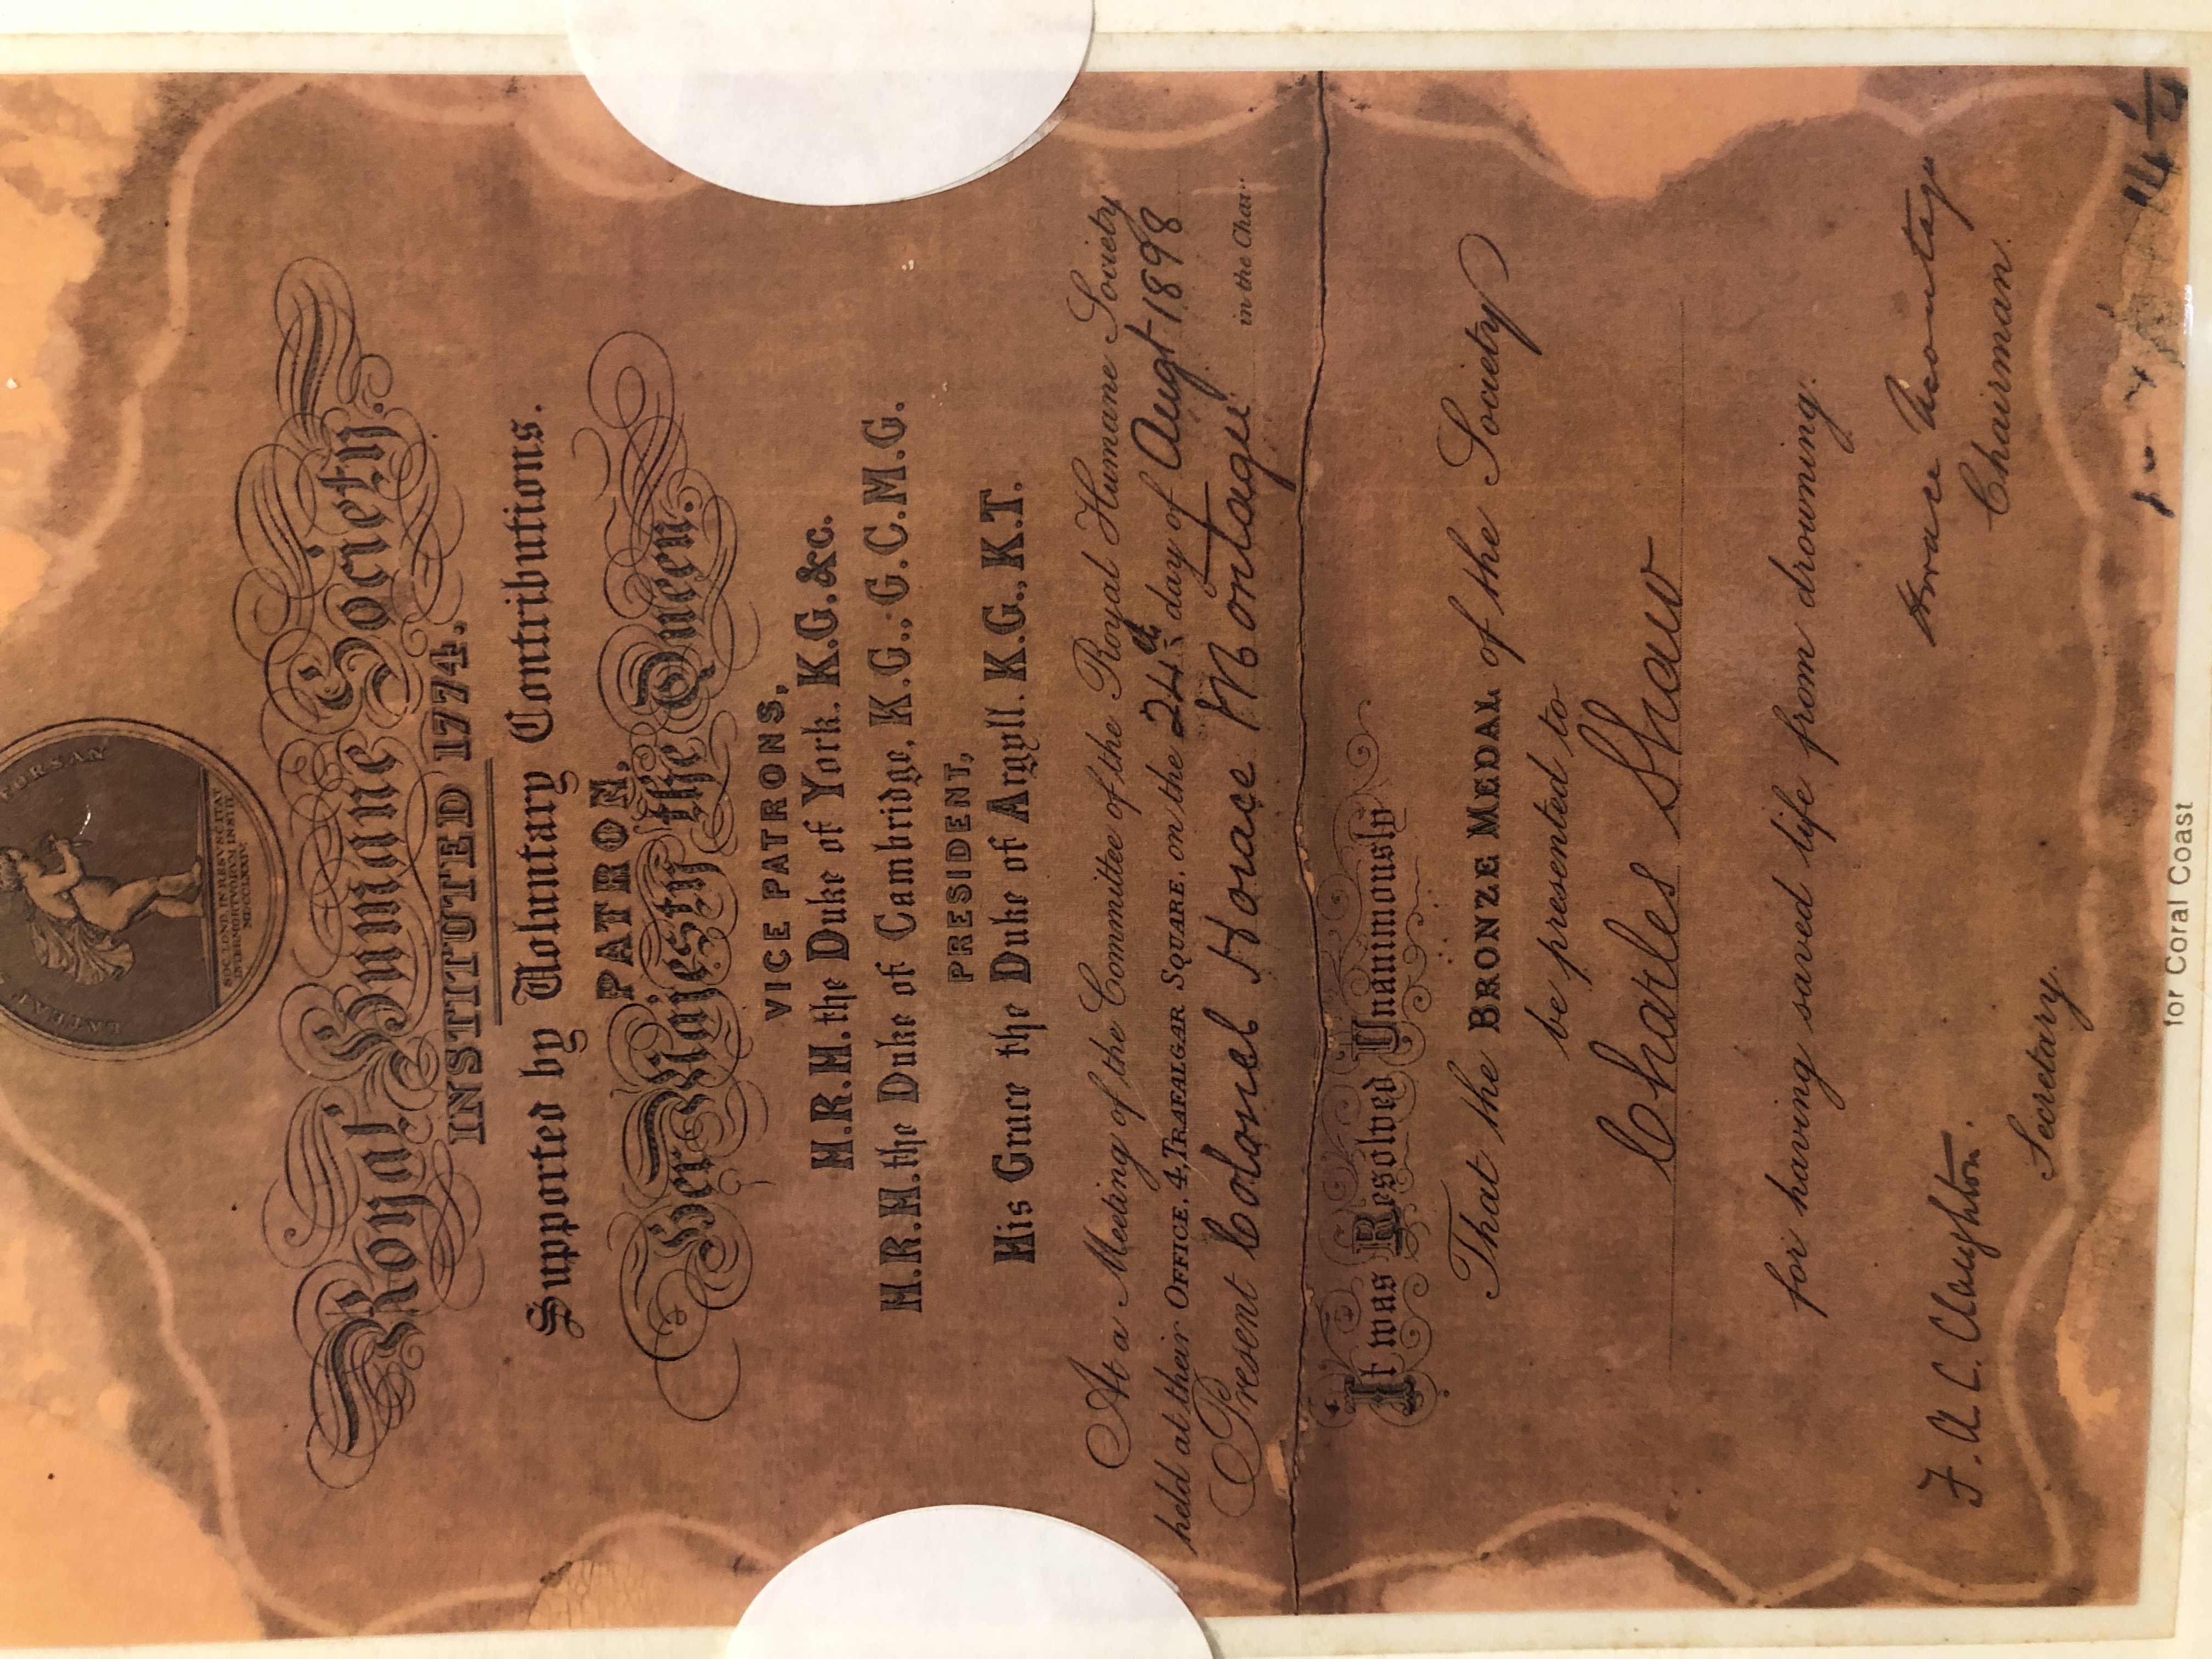 LATEAT FORSAN
SOC. LOND. IN RESVSCITAT
INTERMORTVORVM INSTIT.
MDCCLXXIV.
Royal Humane Society.
INSTITUTED 1774.
Supported by Voluntary Contributions.
PATRON,
Her Majesty the Queen.
VICE PATRONS,
H.R.H. the Duke of York. K.G. &c.
H.R.H. the Duke of Cambridge, K.G., G.C.M.G.
PRESIDENT,
His Grace the Duke of Argyll. K.G., K.T.
At a Meeting of the Committee of the Royal Humane Society
held at their OFFICE, 4, TRAFALGAR SQUARE, on the 24th day of Augt 1898
Present Colonel Horace Montagu in the Chair
It was Resolved Unanimously
That the BRONZE MEDAL of the Society
be presented to
Charles Shaw
for having saved life from drowning.
Horace Montagu
F. A. C. Claughton.
Chairman.
Secretary.
14 1/4
for Coral Coast